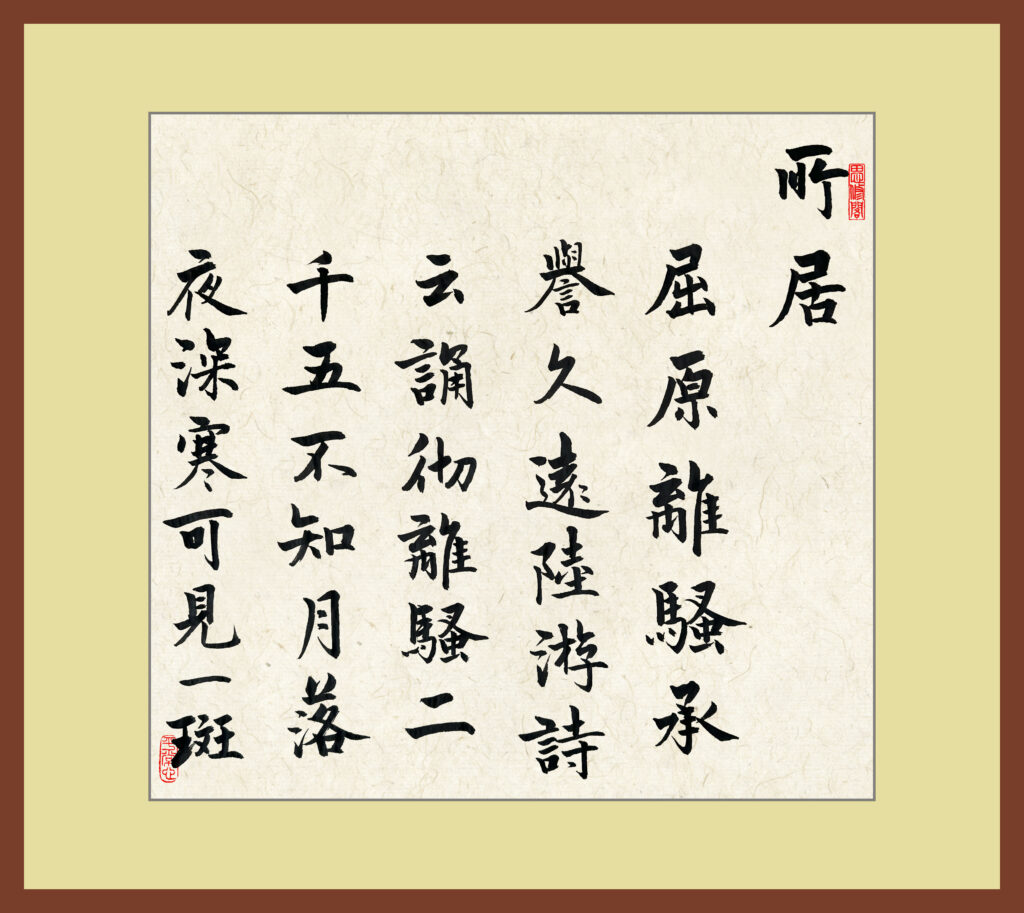 思修閣
所居
屈原離騷承
譽久遠陸游詩
云誦彻離騷二
千五不知月落
夜深寒可見一斑
平常心